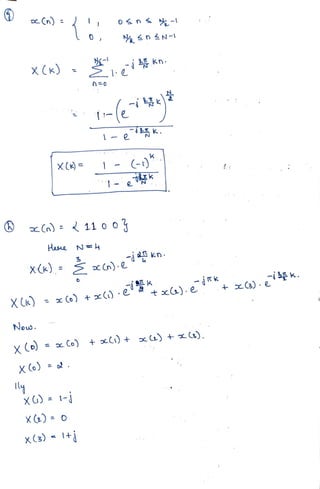 (g) x(n) = { 1, 0 ≤ n ≤ N/2 -1
0, N/2 ≤ n ≤ N-1
X(k) = Σ_{n=0}^{N/2-1} 1. e^{-j 2π/N kn.}
= 1-(e^{-j 2π/N k})^{N/2} / 1 - e^{-j 2π/N k.}
X(k) = 1 - (-1)^k / 1 - e^{-j 2π/N k}
(h) x(n) = { 1 1 0 0 }
Here N=4
X(k) = Σ_{0}^{3} x(n). e^{-j 2π/4 kn.}
X(k) = x(0) + x(1) . e^{-j 2π/4 k} + x(2). e^{-jπk} + x(3). e^{-j 3π/2 k.}
Now.
X(0) = x(0) + x(1) + x(2) + x(3).
X(0) = 2.
lly
X(1) = 1-j
X(2) = 0
X(3) = 1+j